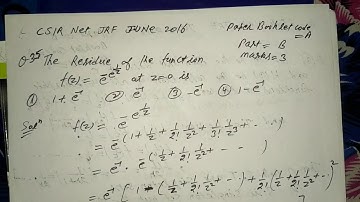 CSIR Net JRF JUNE 2016
Paper Booklet code = A
Part = B
marks = 3
Q35 The Residue of the function
f(z) = e^{-e^{1/z}} at z=0 is
① 1+e^{-1} ② e^{-1} ③ -e^{-1} ④ 1-e^{-1}
Sol^n f(z) = e^{-e^{1/z}}
= e^{-(1+1/z+1/2! 1/z^2+1/3! 1/z^3+ ...)}
= e^{-1} . e^{-(1/z+1/2! 1/z^2+ ...)}
= e^{-1} [1-(1/z+1/2! 1/z^2+...)+1/2!(1/z+1/2! 1/z^2+...)^2